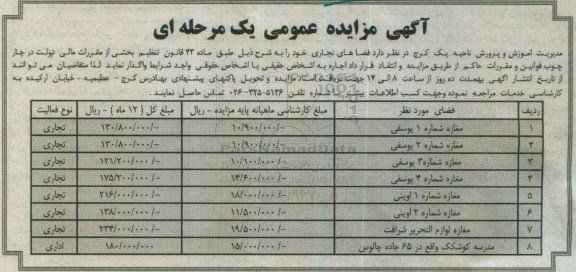 آگهی مزایده عمومی یک مرحله ای
مدیریت آموزش و پرورش ناحیه یک کرج در نظر دارد فضا های تجاری خود را به شرح ذیل طبق ماده ۴۳ قانون تنظیم بخشی از مقررات مالی دولت در چار
چوب قوانین و مقررات حاکم از طریق مزایده و انعقاد قرار داد اجاره به اشخاص حقیقی یا اشخاص حقوقی واجد شرایط واگذار نماید لذا متقاضیان می توانند
از تاریخ انتشار آگهی بهمدت ده روز از ساعت ۸ الی ۱۴ جهت دریافت اسناد مزایده و تحویل پاکتهای پیشنهادی بهآدرس کرج - عظیمیه - خیابان ارکیده به
کارشناسی خدمات مراجعه نموده وجهت کسب اطلاعات بیشتر با شماره تلفن ۳۲۵۰۵۱۳۶-۰۲۶ تماس حاصل نمایند.
ردیف فضای مورد نظر مبلغ کارشناسی ماهیانه پایه مزایده - ریال مبلغ کل ( ۱۲ ماه ) - ریال نوع فعالیت
۱ مغازه شماره ۱ یوسفی ۱۰/۹۰۰/۰۰۰/- ۱۳۰/۸۰۰/۰۰۰/- تجاری
۲ مغازه شماره ۲ یوسفی ۱۰/۹۰۰/۰۰۰/- ۱۳۰/۸۰۰/۰۰۰/- تجاری
۳ مغازه شماره۳ یوسفی ۱۰/۱۰۰/۰۰۰/- ۱۲۱/۲۰۰/۰۰۰/- تجاری
۴ مغازه شماره ۴ یوسفی ۱۴/۶۰۰/۰۰۰/- ۱۷۵/۲۰۰/۰۰۰/- تجاری
۵ مغازه شماره ۱ اوینی ۱۸/۰۰۰/۰۰۰/- ۲۱۶/۰۰۰/۰۰۰/- تجاری
۶ مغازه شماره ۲ اوینی ۱۱/۵۰۰/۰۰۰/- ۱۳۸/۰۰۰/۰۰۰/- تجاری
۷ مغازه لوازم التحریر شرافت ۱۹/۵۰۰/۰۰۰/- ۲۳۴/۰۰۰/۰۰۰/- تجاری
۸ مدرسه کوشکک واقع در ۶۵ جاده چالوس ۱۵/۰۰۰/۰۰۰/- ۱۸۰/۰۰۰/۰۰۰ اداری